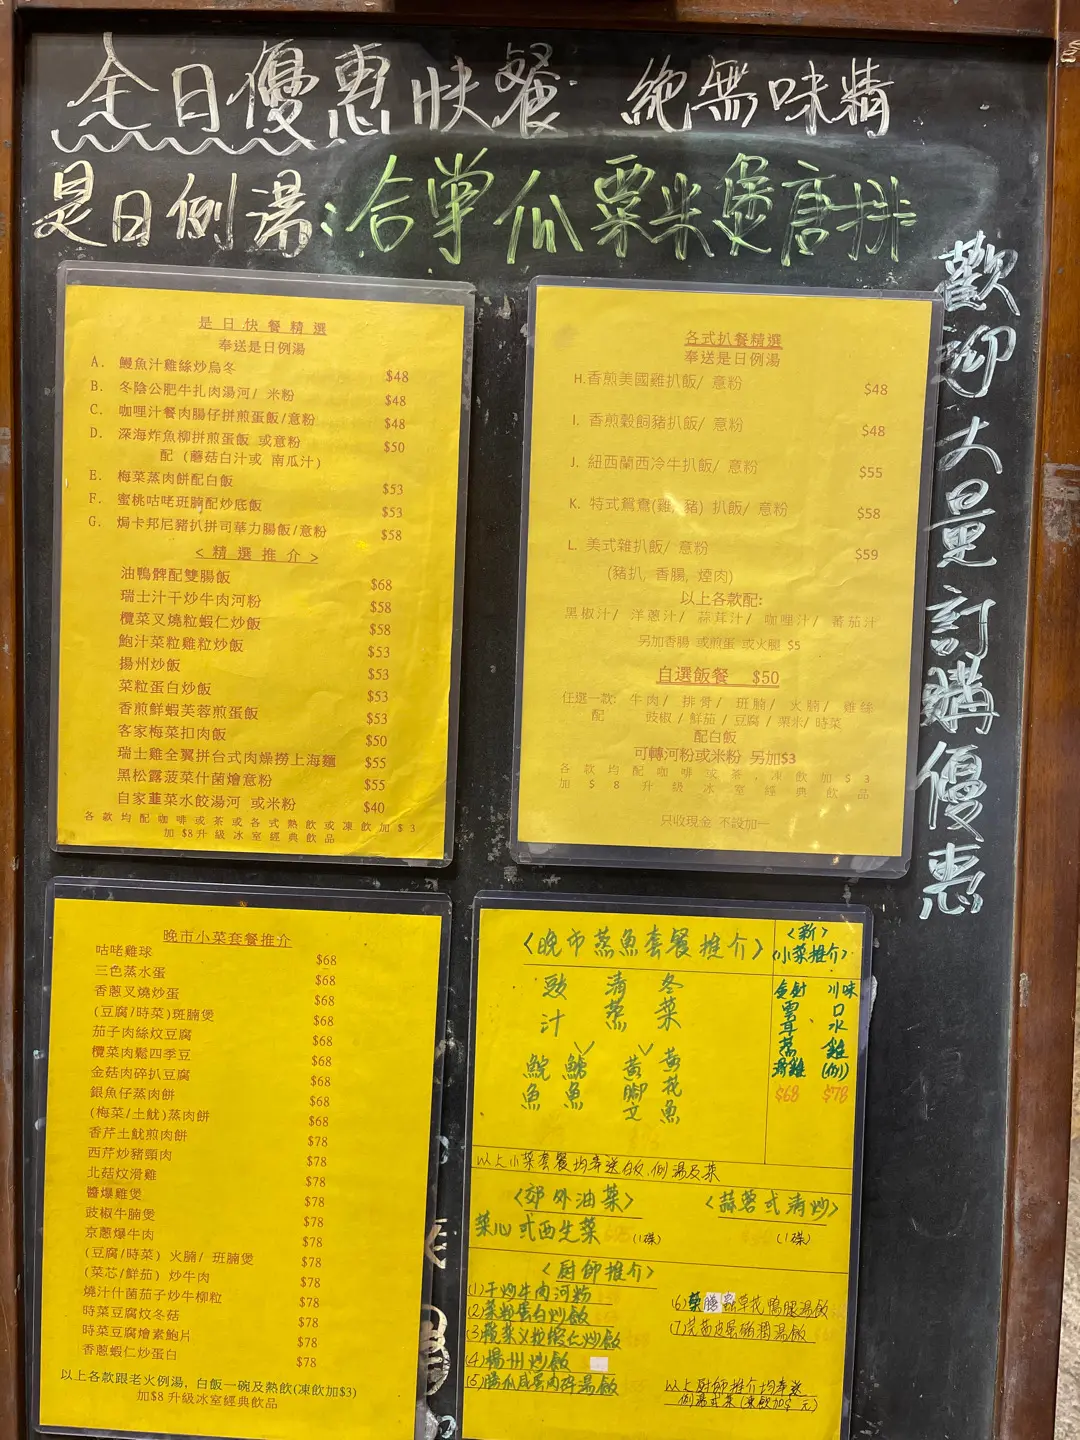 全日優惠快餐 絕無味精
是日例湯:合掌瓜粟米煲唐排
歡迎大量訂購優惠
是日快餐精選
奉送是日例湯
A. 鰻魚汁雞絲炒烏冬 $48
B. 冬陰公肥牛扎肉湯河/ 米粉 $48
C. 咖哩汁餐肉腸仔拼煎蛋飯/意粉 $48
D. 深海炸魚柳拼煎蛋飯 或意粉 $50
配 (蘑菇白汁或 南瓜汁)
E. 梅菜蒸肉餅配白飯 $53
F. 蜜桃咕咾班腩配炒底飯 $53
G. 焗卡邦尼豬扒拼司華力腸飯/意粉 $58
<精選推介>
油鴨髀配雙腸飯 $68
瑞士汁干炒牛肉河粉 $58
欖菜叉燒粒蝦仁炒飯 $58
鮑汁菜粒雞粒炒飯 $53
揚州炒飯 $53
菜粒蛋白炒飯 $53
香煎鮮蝦芙蓉煎蛋飯 $53
客家梅菜扣肉飯 $50
瑞士雞全翼拼台式肉燥撈上海麵 $55
黑松露菠菜什菌燴意粉 $55
自家韮菜水餃湯河 或米粉 $40
各款均配咖啡或茶或各式熱飲或凍飲加$3
加$8升級冰室經典飲品
各式扒餐精選
奉送是日例湯
H.香煎美國雞扒飯/ 意粉 $48
I. 香煎穀飼豬扒飯/ 意粉 $48
J. 紐西蘭西冷牛扒飯/ 意粉 $55
K. 特式鴛鴦(雞, 豬) 扒飯/ 意粉 $58
L. 美式雜扒飯/ 意粉 $59
(豬扒, 香腸, 煙肉)
以上各款配:
黑椒汁/ 洋蔥汁/ 蒜茸汁/ 咖哩汁/ 蕃茄汁
另加香腸 或煎蛋 或火腿 $5
自選飯餐 $50
任選一款: 牛肉/ 排骨/ 班腩/ 火腩/ 雞絲
配 豉椒/鮮茄/豆腐/栗米/時菜
配白飯
可轉河粉或米粉 另加$3
各款均配咖啡或茶,凍飲加$3
加$8升級冰室經典飲品
只收現金 不設加一
晚市小菜套餐推介
咕咾雞球 $68
三色蒸水蛋 $68
香蔥叉燒炒蛋 $68
(豆腐/時菜)斑腩煲 $68
茄子肉絲炆豆腐 $68
欖菜肉鬆四季豆 $68
金菇肉碎扒豆腐 $68
銀魚仔蒸肉餅 $68
(梅菜/土魷)蒸肉餅 $68
香芹土魷煎肉餅 $78
西芹炒豬頸肉 $78
北菇炆滑雞 $78
醬爆雞煲 $78
豉椒牛腩煲 $78
京蔥爆牛肉 $78
(豆腐/時菜) 火腩/ 班腩煲 $78
(菜芯/鮮茄) 炒牛肉 $78
燒汁什菌茄子炒牛柳粒 $78
時菜豆腐炆冬菇 $78
時菜豆腐燴素鮑片 $78
香蔥蝦仁炒蛋白 $78
以上各款跟老火例湯, 白飯一碗及熱飲(凍飲加$3)
加$8升級冰室經典飲品
<晚市蒸魚套餐推介>
豉汁 清蒸 冬菜
鯇魚 鱸魚 黃腳𫚭 黃花魚
<新>
小菜推介>
金針雲耳蒸滑雞 $68
川味口水雞(例) $78
以上小菜套餐均奉送白飯、例湯及菜
<郊外油菜> <蒜蓉或清炒>
菜心或西生菜 (1碟) (1碟)
<厨師推介>
(1)干炒牛肉河粉
(2)菜粒蛋白炒飯
(3)欖菜叉粒蝦仁炒飯
(4)揚州炒飯
(5)勝瓜咸蛋肉碎湯飯
(6)蟲草花鴨腿湯飯
(7)芫茜皮蛋豬潤湯飯
以上厨師推介均奉送
例湯或菜(凍飲加$ 元)